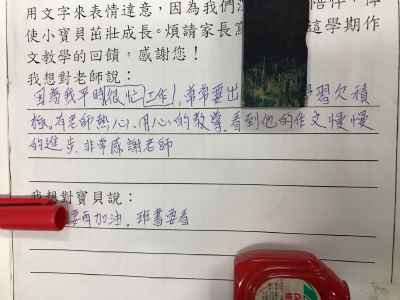 用文字來表情達意,因為我們
使小寶貝茁壯成長。煩請家長 這學期作
文教學的回饋,感謝您!
我想對老師說:
因為我平時很忙工作,常常要出 學習欠積
極。有老師熱心,用心的教導,看到他的作文慢慢
的進步,非常感謝老師
我想對寶貝說:
要再加油,班書要看